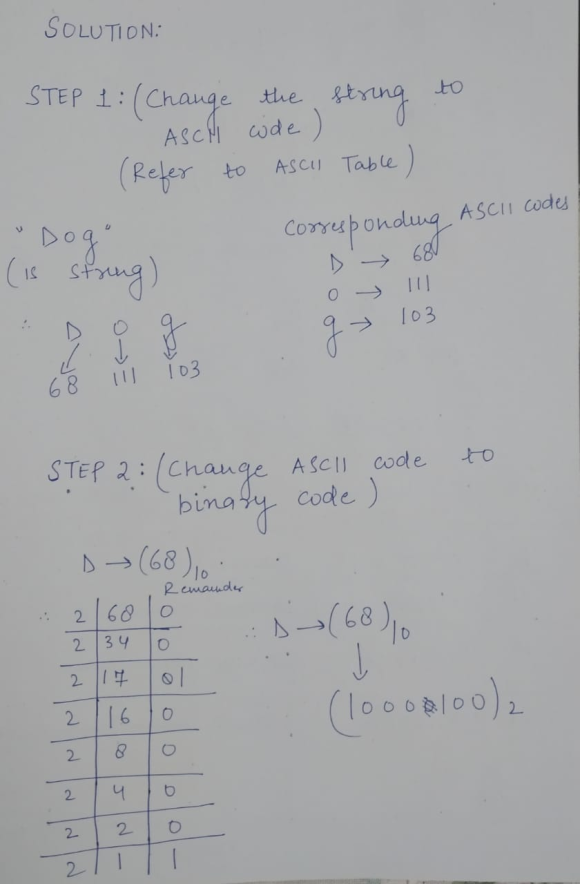 SOLUTION:
STEP 1: (Change the string to
ASCII code)
(Refer to ASCII Table)
"Dog"
(is string)
∴ D o g
68 111 103
Corresponding ASCII codes
D → 68
o → 111
g → 103
STEP 2: (Change ASCII code to
binary code)
D → (68)10
Remainder
∴ 2 | 68 | 0
2 | 34 | 0
2 | 17 | 1
2 | 16 | 0
2 | 8 | 0
2 | 4 | 0
2 | 2 | 0
2 | 1 | 1
∴ D → (68)10
↓
(1000100)2